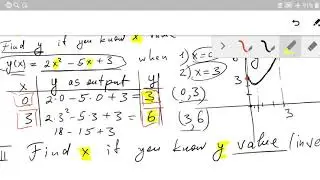 Find y if you know x
y(x) = 2x² - 5x + 3 when 1) x=0
2) x=3
x | y as output | y
0 | 2·0 - 5·0 + 3 = | 3 (0,3)
3 | 2·3² - 5·3 + 3 = | 6 (3,6)
18 - 15 + 3
III Find x if you know y value (inve
6
3
3